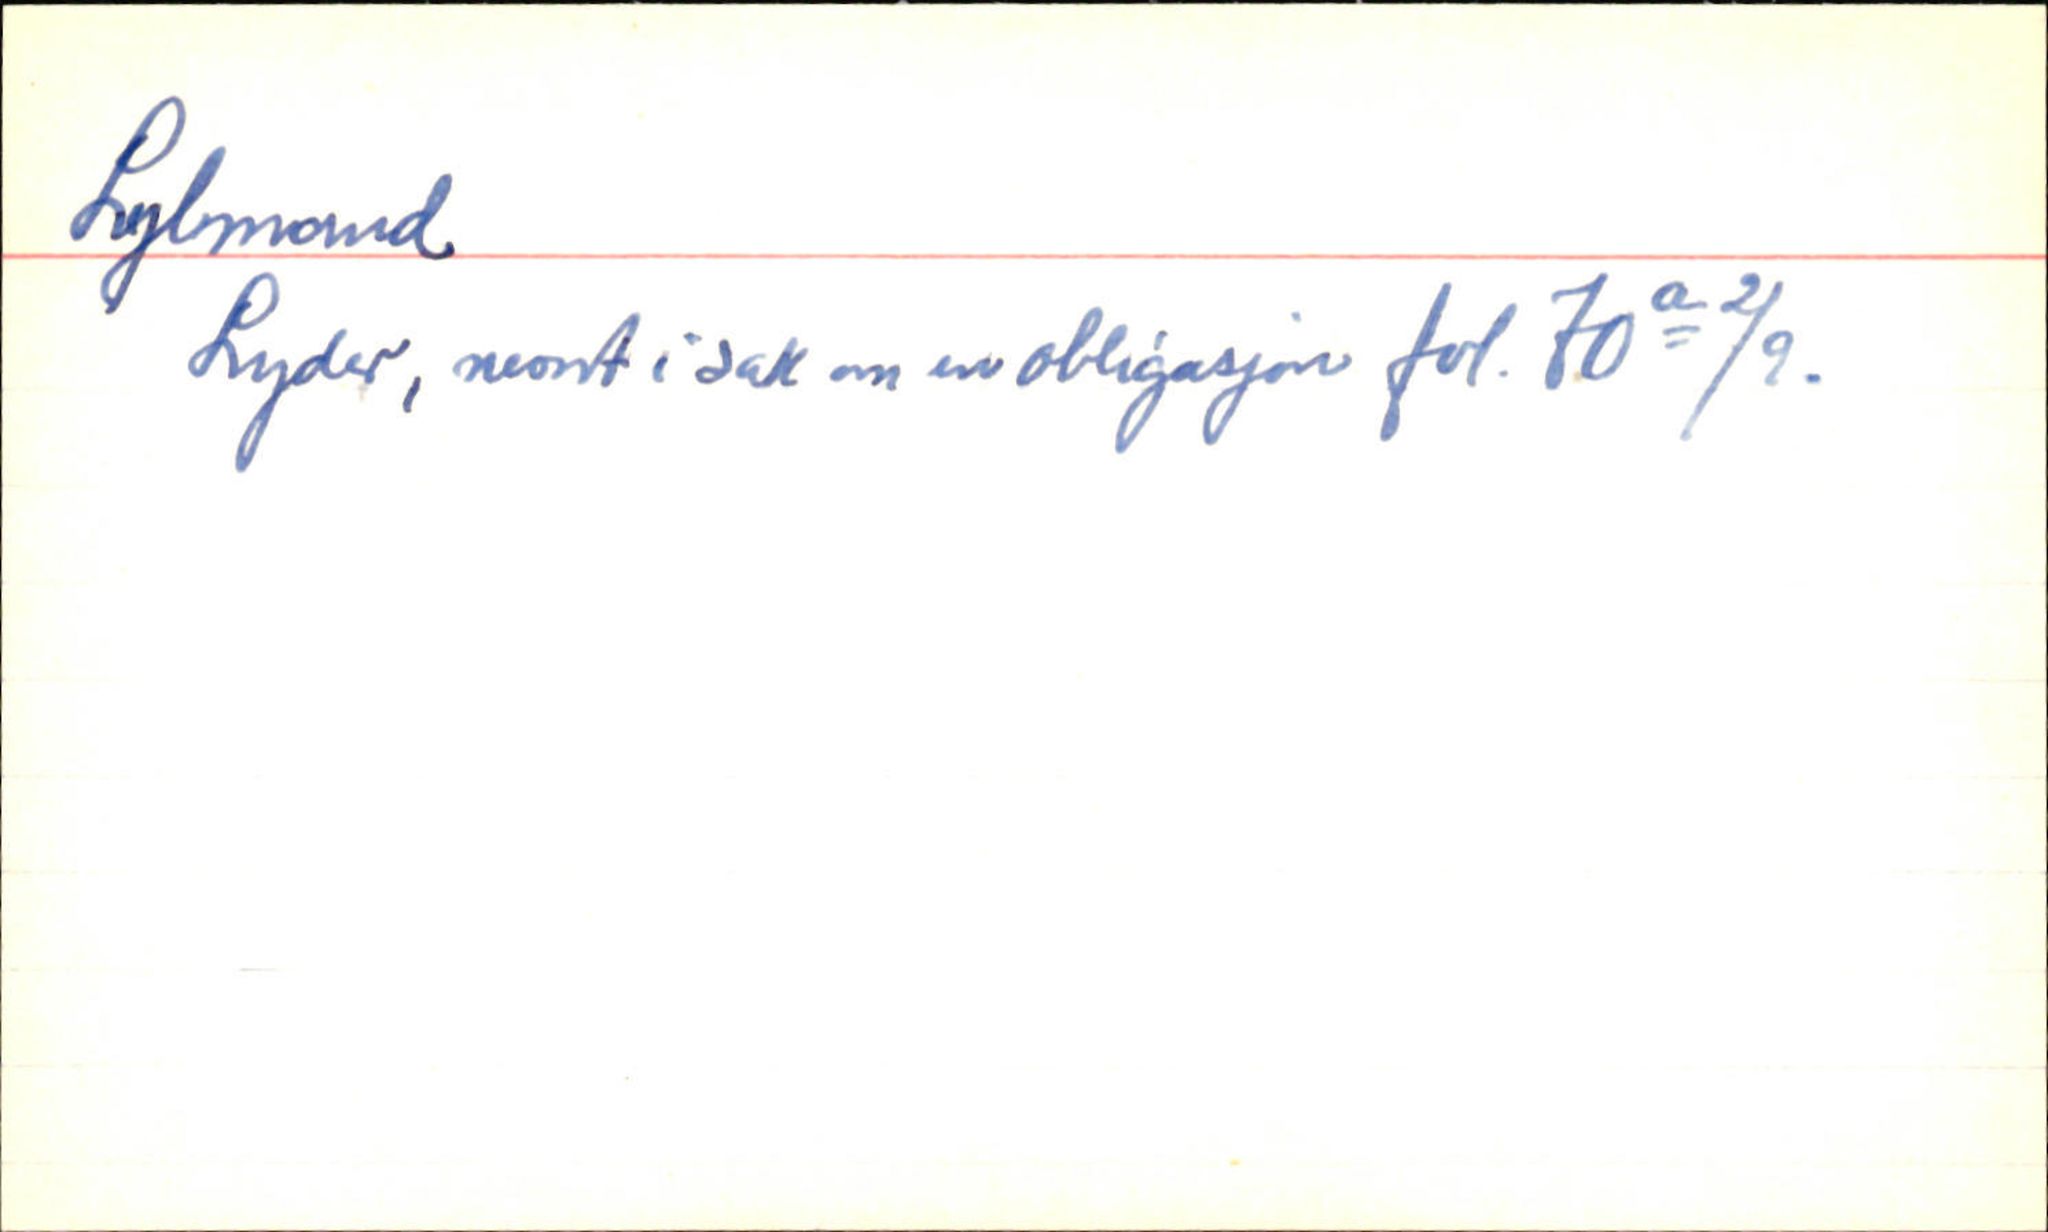 Lybmand
Lyder, nevnt i sak om en obligasjon fol. 70ª 2/9.